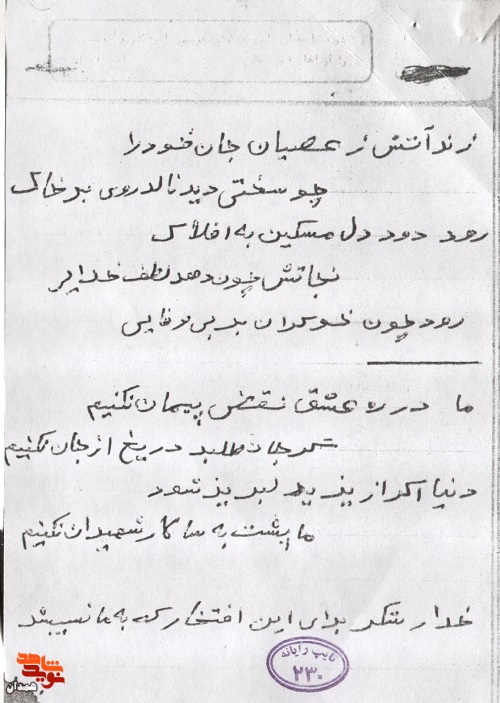 زند آتش ز عصیان جان خود را
چو سختی دید نالد روی بر خاک
رود دود دل مسکین به افلاک
نجاتش چون دهد لطف خدایی
رود چون خوکدان بد بی وفایی
ما در ره عشق نقض پیمان نکنیم
گر جان طلبد دریغ از جان نکنیم
دنیا اگر از یزید لبریز شود
ما پشت به سالار شهیدان نکنیم
خدا را شکر برای این افتخار که به ما نصیب شد
تایپ رایانه
۲۳۰
نوید شاهد
همدان